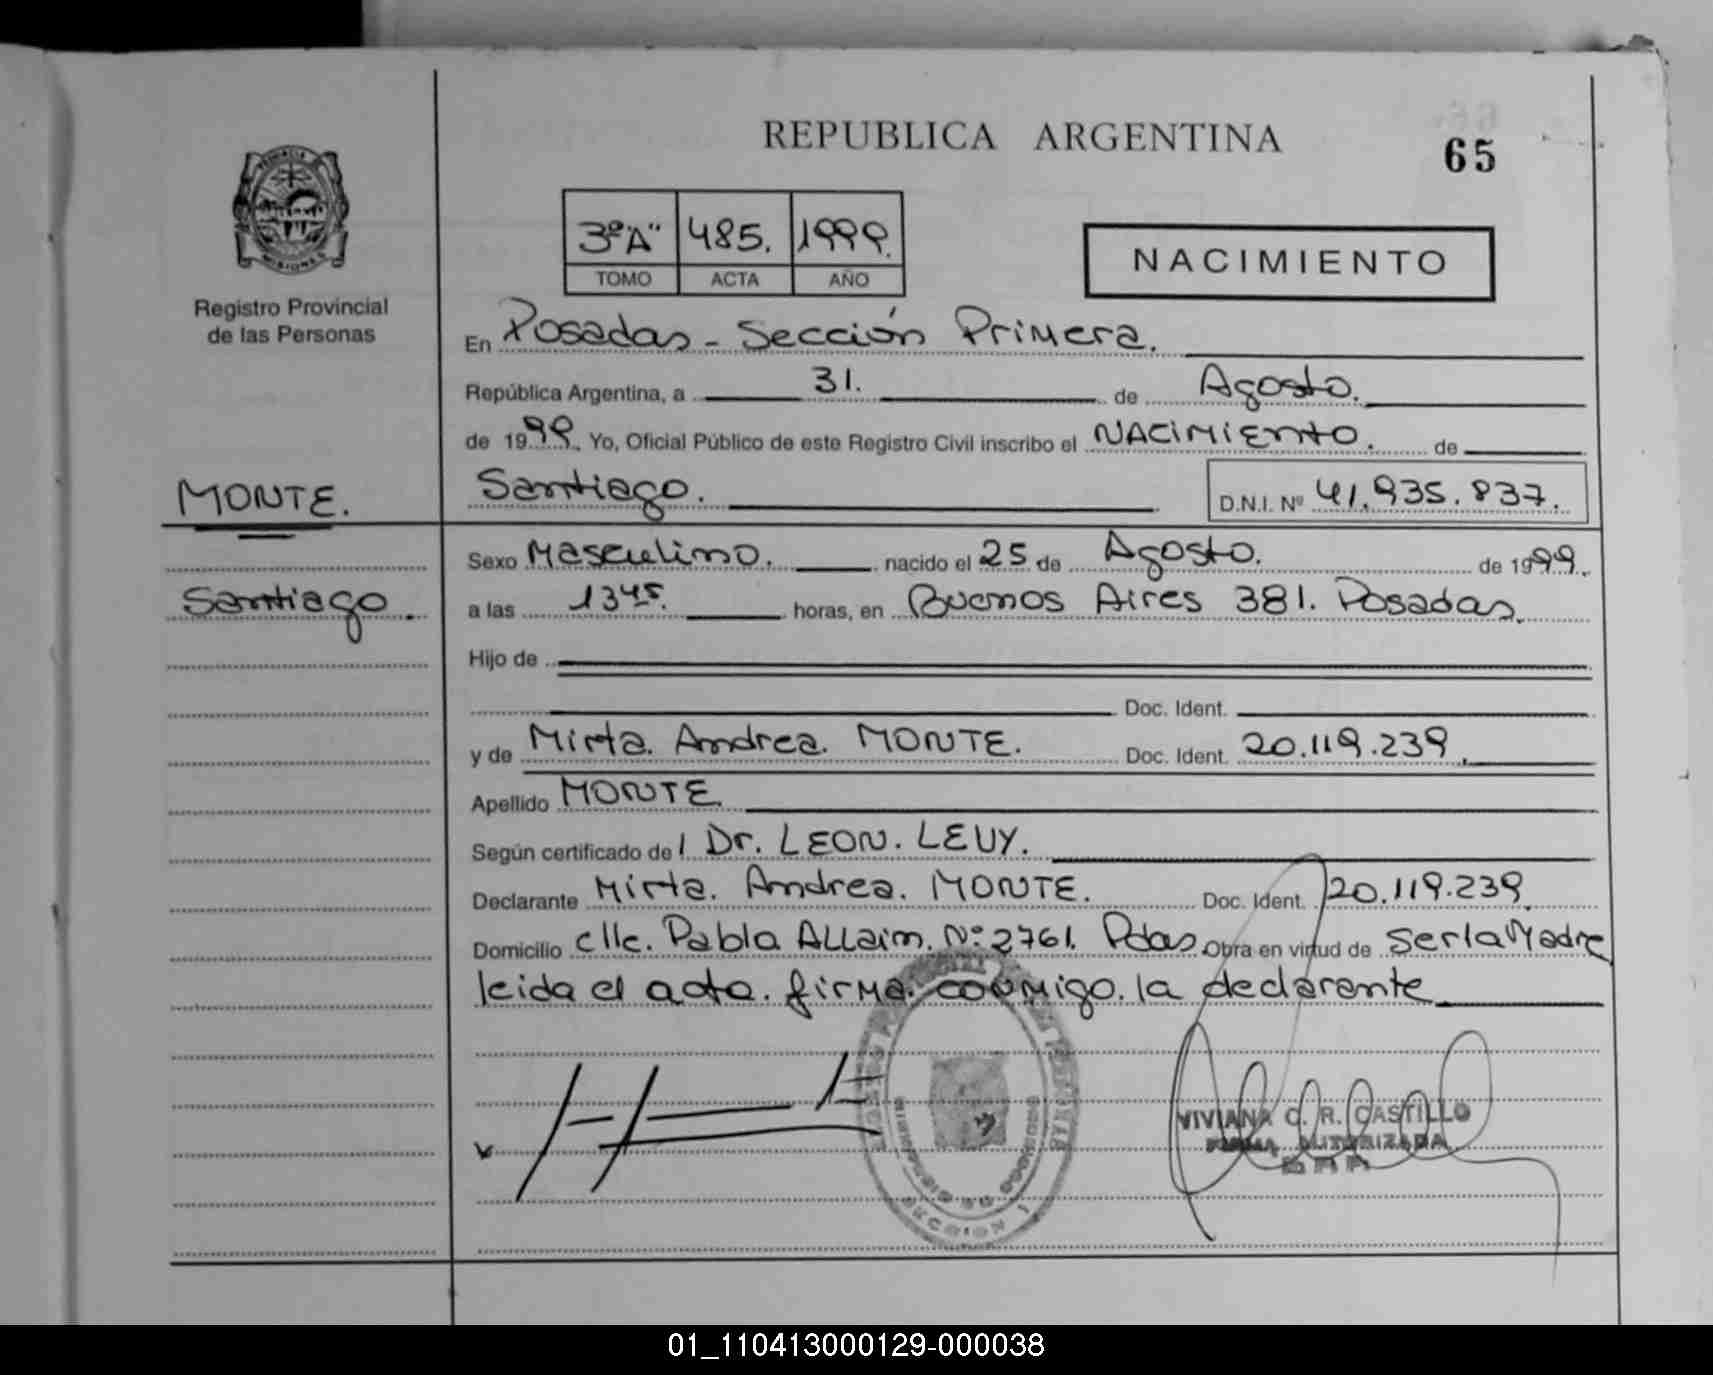 REPUBLICA ARGENTINA
65
PROVINCIA
MISIONES
Registro Provincial
de las Personas
3º"A" 485. 1999.
TOMO ACTA AÑO
NACIMIENTO
En Posadas - Sección Primera.
República Argentina, a 31. de Agosto.
de 1999. Yo, Oficial Público de este Registro Civil inscribo el NACIMIENTO. de
MONTE.
Santiago. D.N.I. Nº 41.935.837.
Sexo Masculino. nacido el 25 de Agosto. de 1999.
Santiago.
a las 13 45. horas, en Buenos Aires 381. Posadas.
Hijo de
Doc. Ident.
y de Mirta. Andrea. MONTE. Doc. Ident. 20.119.239.
Apellido MONTE
Según certificado de / Dr. LEON. LEVY.
Declarante Mirta. Andrea. MONTE. Doc. Ident. 20.119.239.
Domicilio clle. Pabla Allaim. Nº: 2761. Pdas. Obra en virtud de ser la Madre
leida el acta. firma. conmigo. la declarante
VIVIANA C. R. CASTILLO
FIRMA AUTORIZADA
SECCION 1
01_110413000129-000038